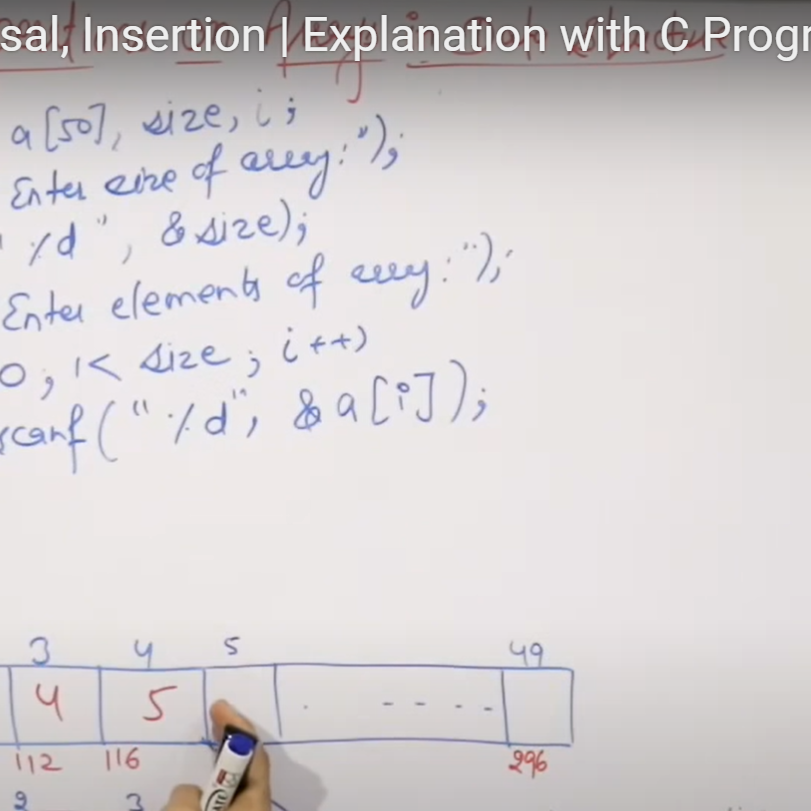 sal, Insertion | Explanation with C Progr
a[50], size, i;
Enter size of array:");
"%d", &size);
Enter elements of array:");
0; i< size; i++)
scanf("%d", &a[i]);
3 4 5 49
4 5 . - - - -
112 116 296
2 3